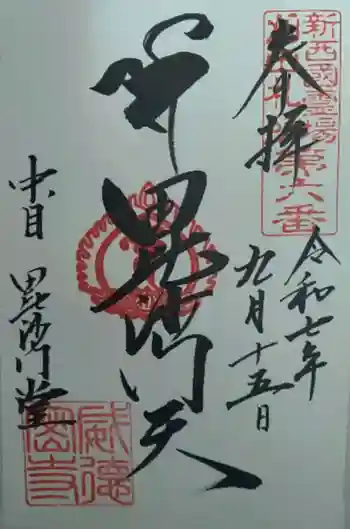 新西國霊場第六番
奉拝
令和七年
九月十五日
毘沙門天
毘沙門堂
威徳
密寺